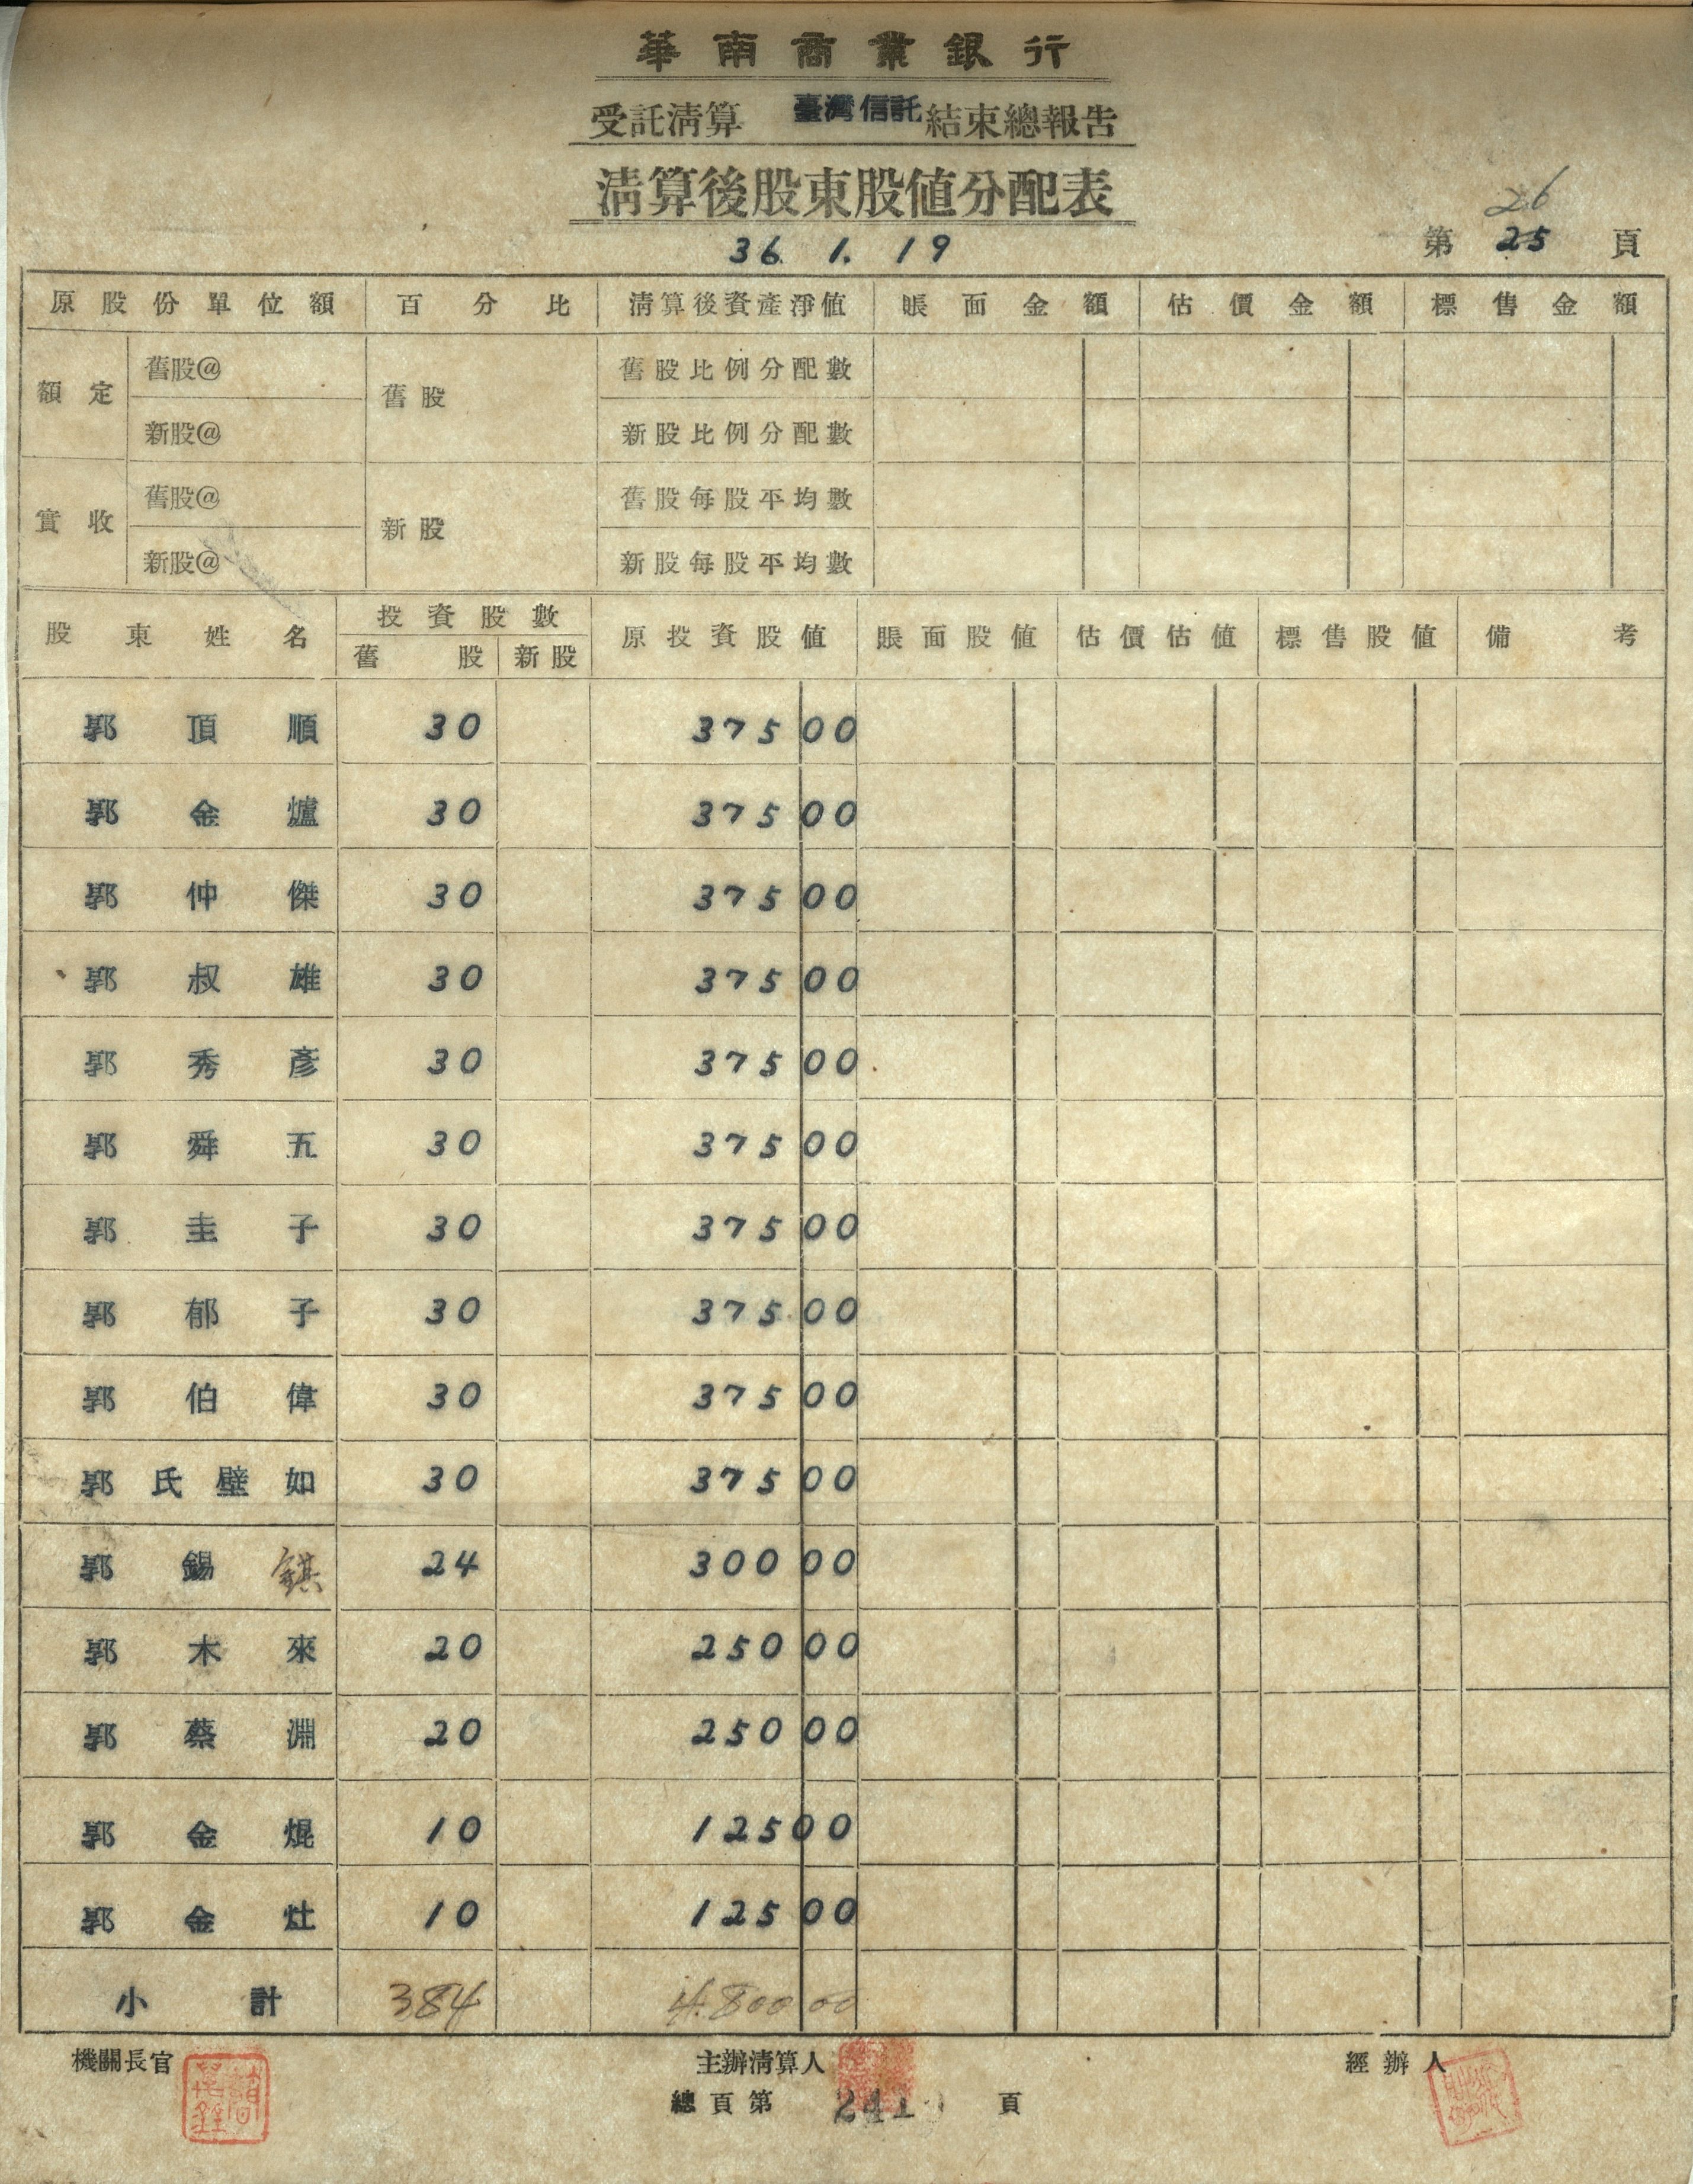 華南商業銀行
受託淸算 臺灣信託 結束總報告
淸算後股東股値分配表
26
36. 1. 19 第 25 頁
原股份單位額 百分比 淸算後資產淨値 賬面金額 估價金額 標售金額
額定 舊股@ 舊股 舊股比例分配數
新股@ 新股比例分配數
實收 舊股@ 新股 舊股每股平均數
新股@ 新股每股平均數
股東姓名 投資股數 原投資股値 賬面股値 估價估値 標售股値 備考
舊股 新股
郭頂順 30 375 00
郭金爐 30 375 00
郭仲傑 30 375 00
郭叔雄 30 375 00
郭秀彥 30 375 00
郭舜五 30 375 00
郭圭子 30 375 00
郭郁子 30 375 00
郭伯偉 30 375 00
郭氏壁如 30 375 00
郭錫錤 24 300 00
郭木來 20 250 00
郭蔡淵 20 250 00
郭金焜 10 125 00
郭金灶 10 125 00
小計 384 4.800 00
機關長官 主辦淸算人 經辦人
總頁第 頁